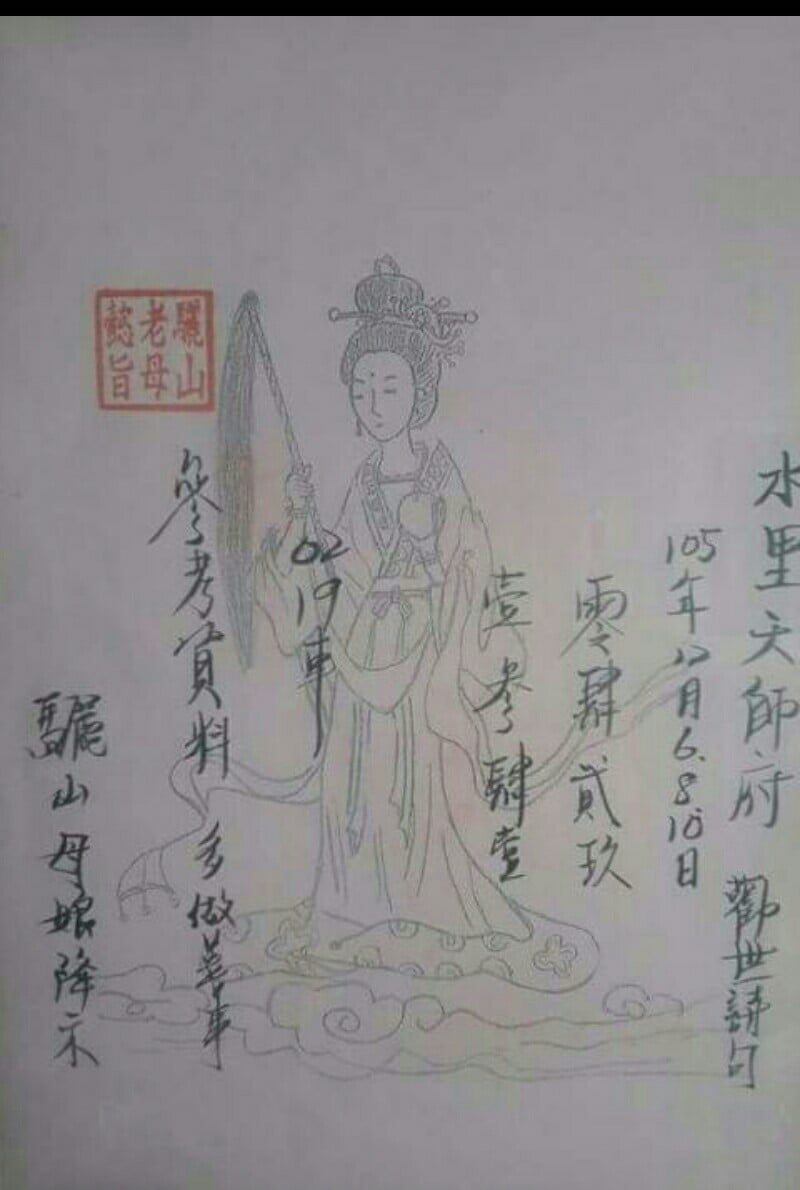 水里天師府
觀世請句
105年12月6.8.10日
零肆貳玖
壹參肆壹
02
19車
參考資料
多做善事
驪山母娘降示
驪山老母懿旨